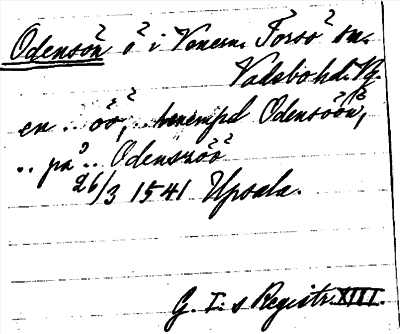 Odensön ö i Venern. Torsö sn.
Vadsbo hd. Vg.
en .. öö, .. benempd Odensöön,
.. på .. Odenszöö
26/3 1541 Upsala.
G. I:s Registr. XIII.